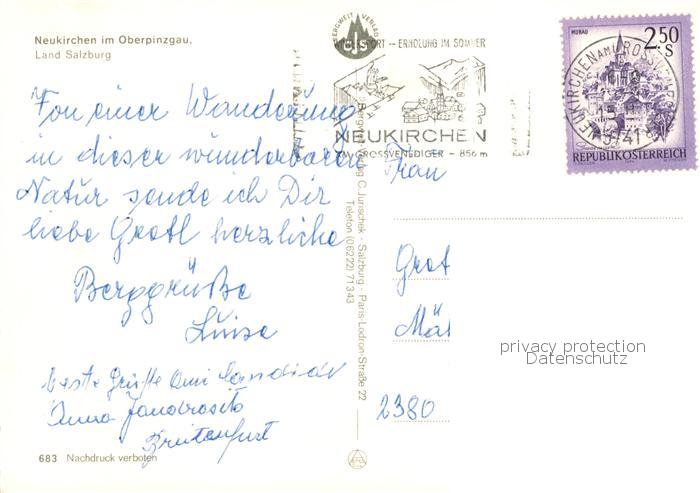 Neukirchen im Oberpinzgau,
Land Salzburg
Von einer Wanderung
in dieser wunderbaren
Natur sende ich Dir
liebe Gretl herzliche
Berggrüße
Luise
beste Grüße
Anna
Breitenfurt
683 Nachdruck verboten
BERGWELT VERLAG
CJS
ERHOLUNG IM SOMMER
NEUKIRCHEN
AM GROSSVENEDIGER – 856 m
Bergwelt Verlag C. Jurischek · Salzburg · Paris-Lodron-Straße 22
Telefon (06222) 71343
MURAU
2.50
S
REPUBLIK ÖSTERREICH
NEUKIRCHEN AM GROSSVENEDIGER
5741
Frau
Gret
Mä
2380
privacy protection
Datenschutz